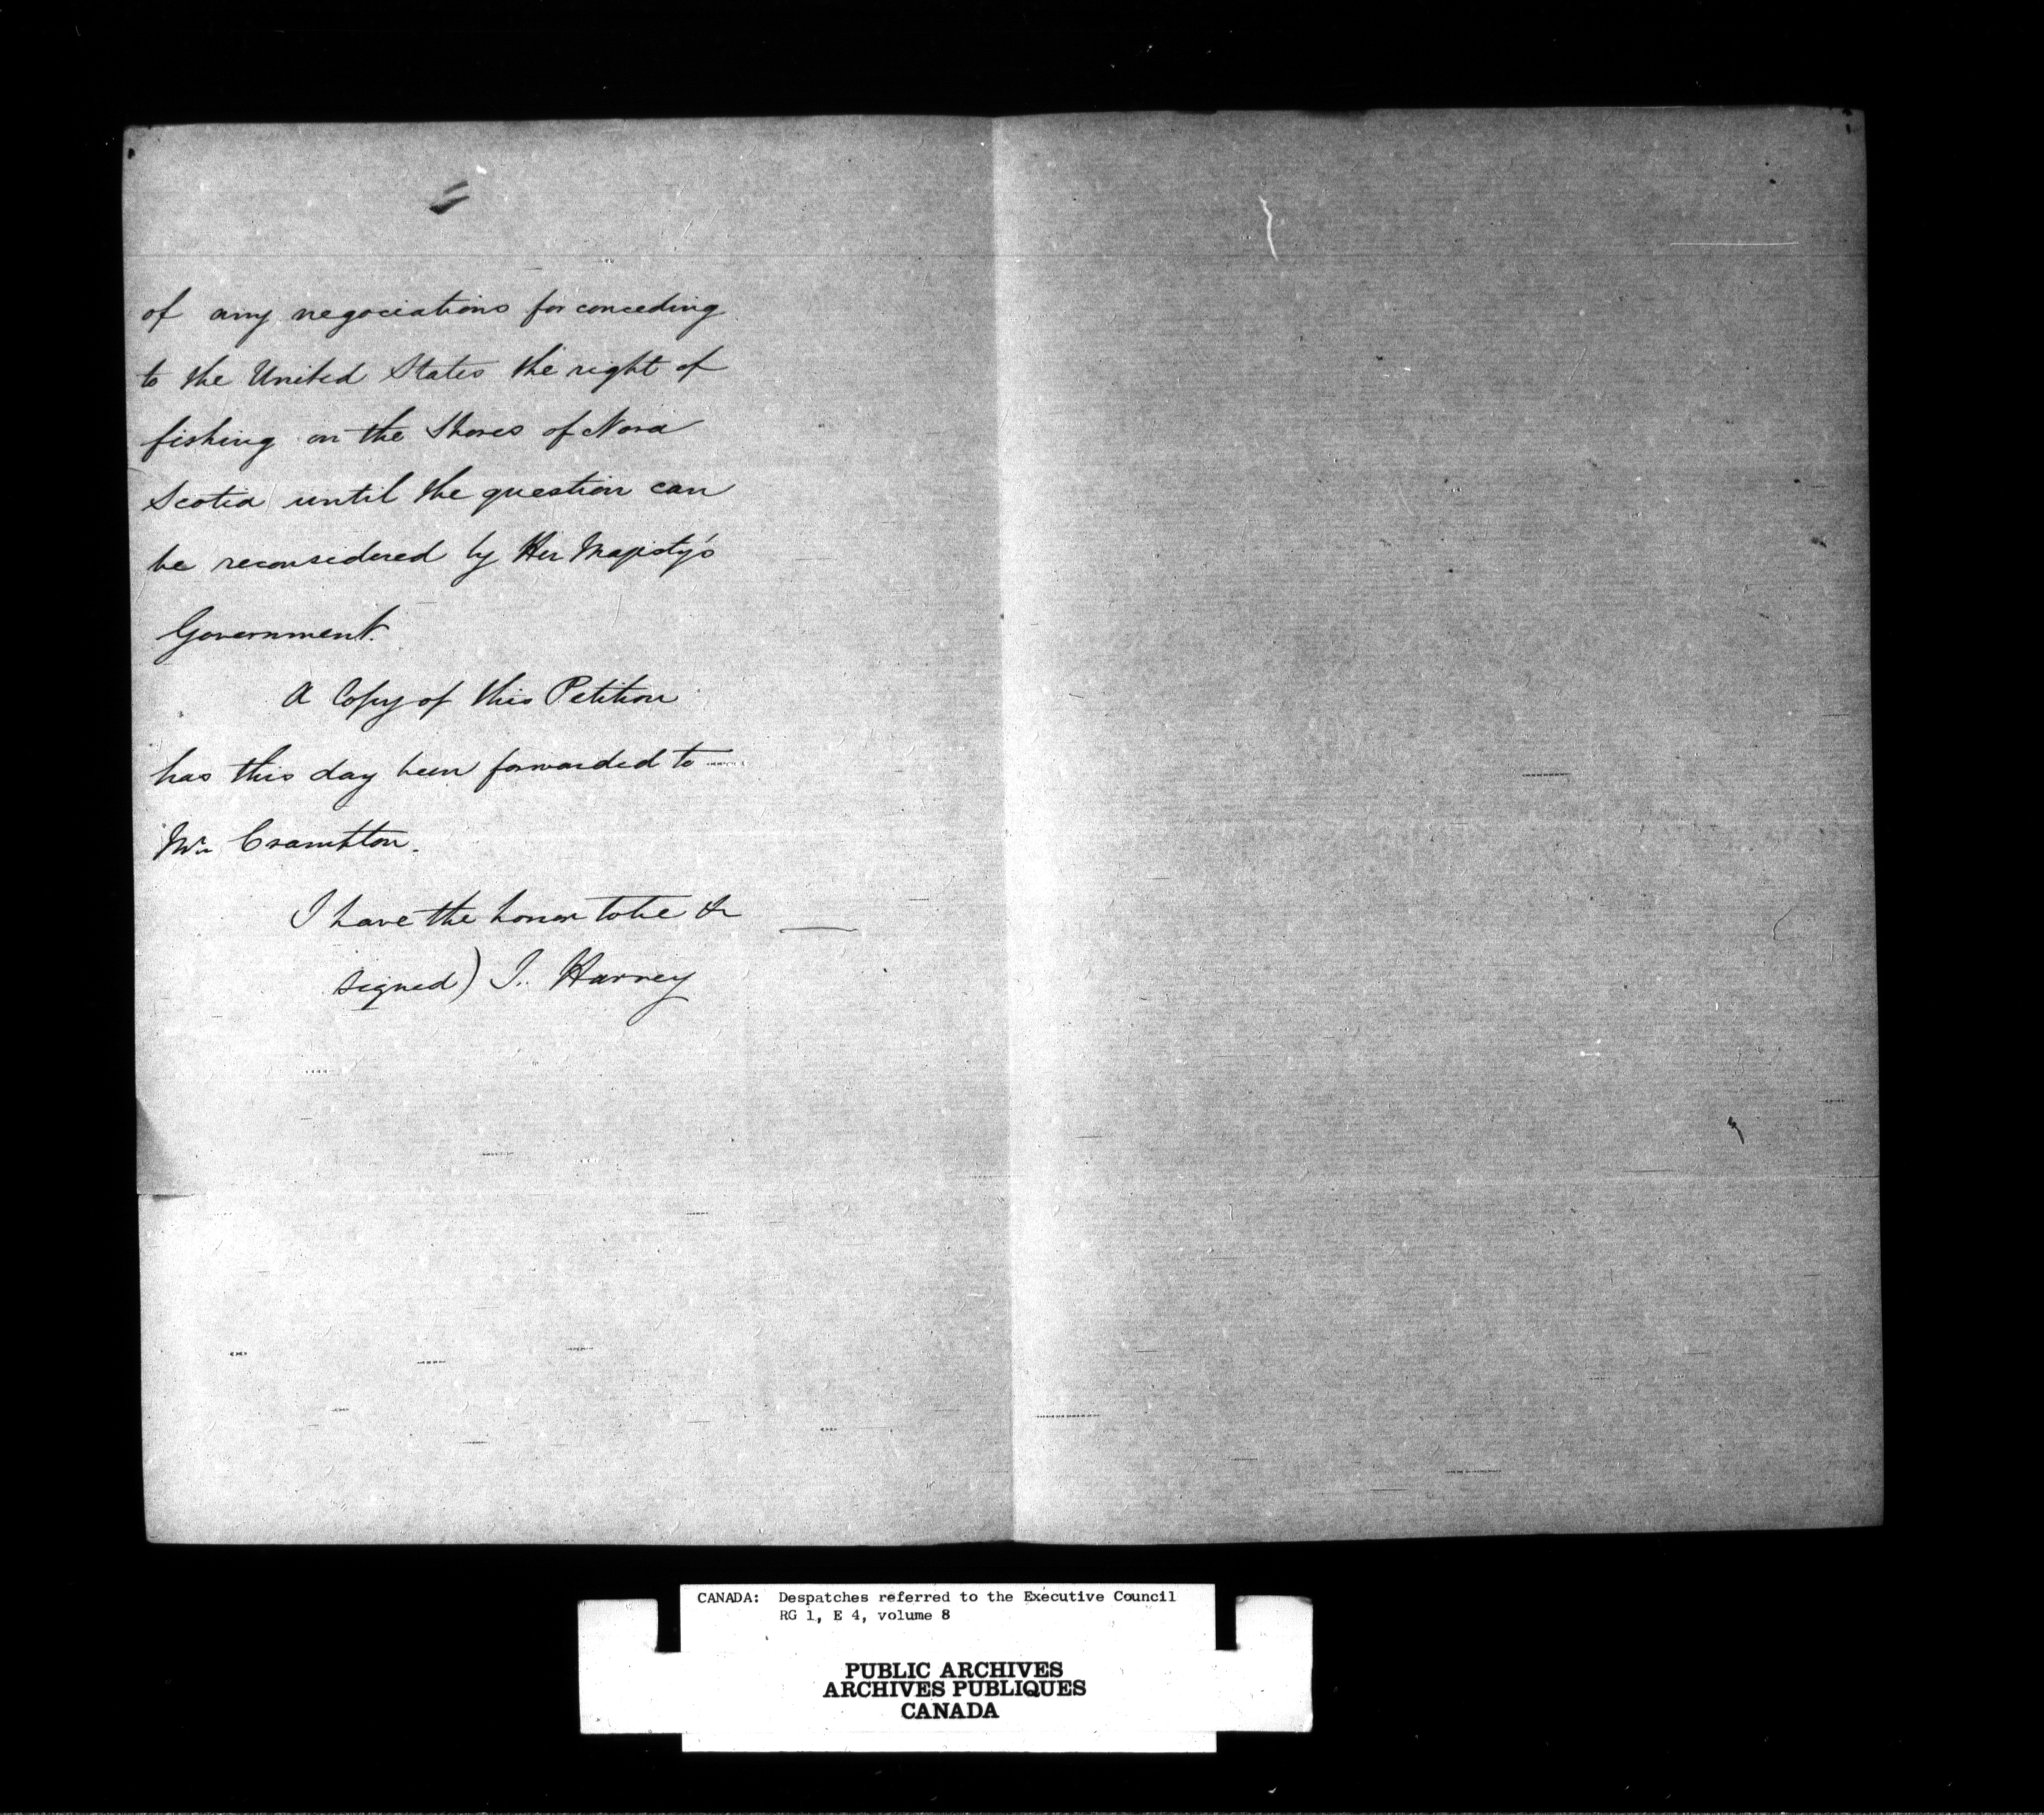 of any negociations for conceding
to the United States the right of
fishing on the Shores of Nova
Scotia until the question can
be reconsidered by Her Majesty's
Government.
A Copy of this Petition
has this day been forwarded to
Mr. Crampton.
I have the honor to be &c
signed) J. Harvey
CANADA: Despatches referred to the Executive Council
RG 1, E 4, volume 8
PUBLIC ARCHIVES
ARCHIVES PUBLIQUES
CANADA